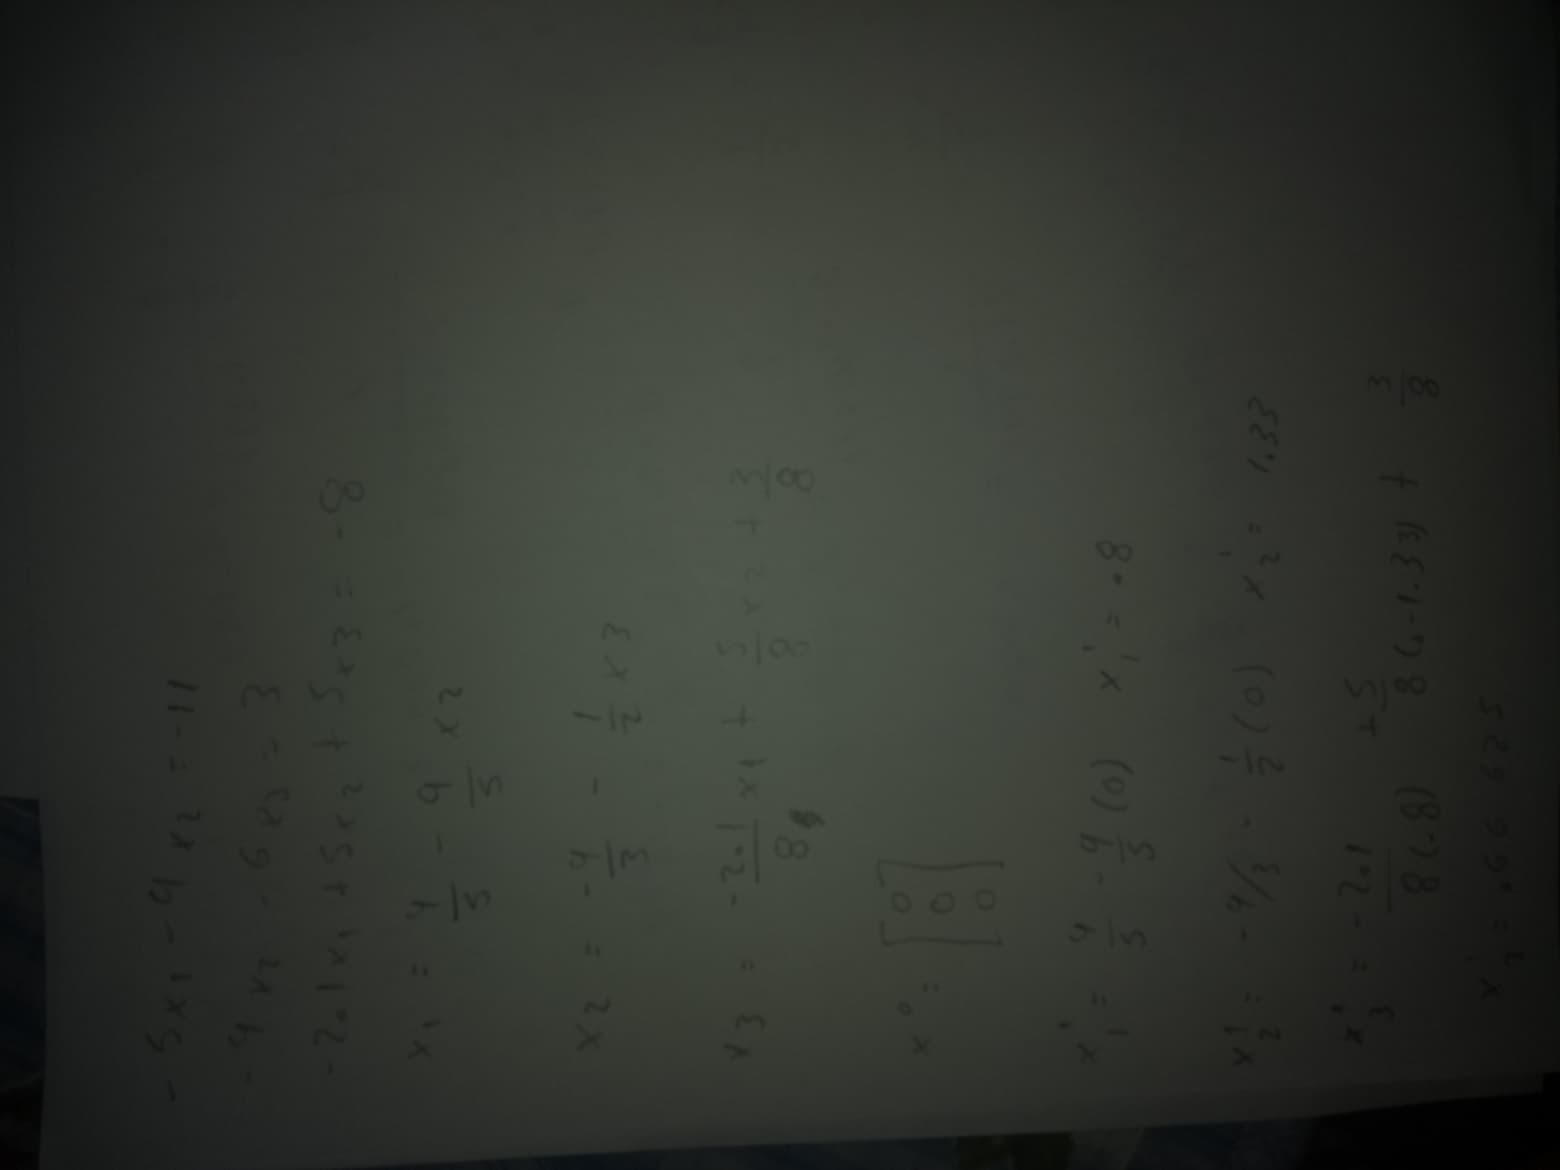 - 5x1 - 9x2 = -11
- 9x2 - 6x3 = 3
- 2.1x1 + 5x2 + 5x3 = -8
x1 = 4/5 - 9/5 x2
x2 = - 4/3 - 1/2 x3
x3 = - 2.1/8 x1 + 5/8 x2 + 3/8
x⁰ = [0 0 0]
x₁¹ = 4/5 - 9/5 (0) x₁¹ = .8
x₂¹ = - 4/3 - 1/2 (0) x₂¹ = 1.33
x₃¹ = - 2.1/8 (.8) + 5/8 (-1.33) + 3/8